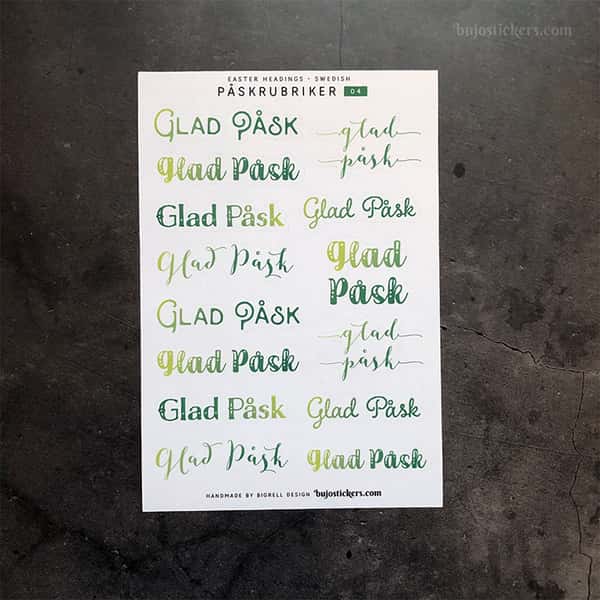 bujostickers.com
EASTER HEADINGS - SWEDISH
PÅSKRUBRIKER 04
GLAD PÅSK
Glad Påsk
Glad Påsk
Glad Påsk
GLAD PÅSK
Glad Påsk
Glad Påsk
Glad Påsk
glad
påsk
Glad Påsk
Glad
Påsk
glad
påsk
Glad Påsk
Glad Påsk
HANDMADE BY BIGRELL DESIGN bujostickers.com